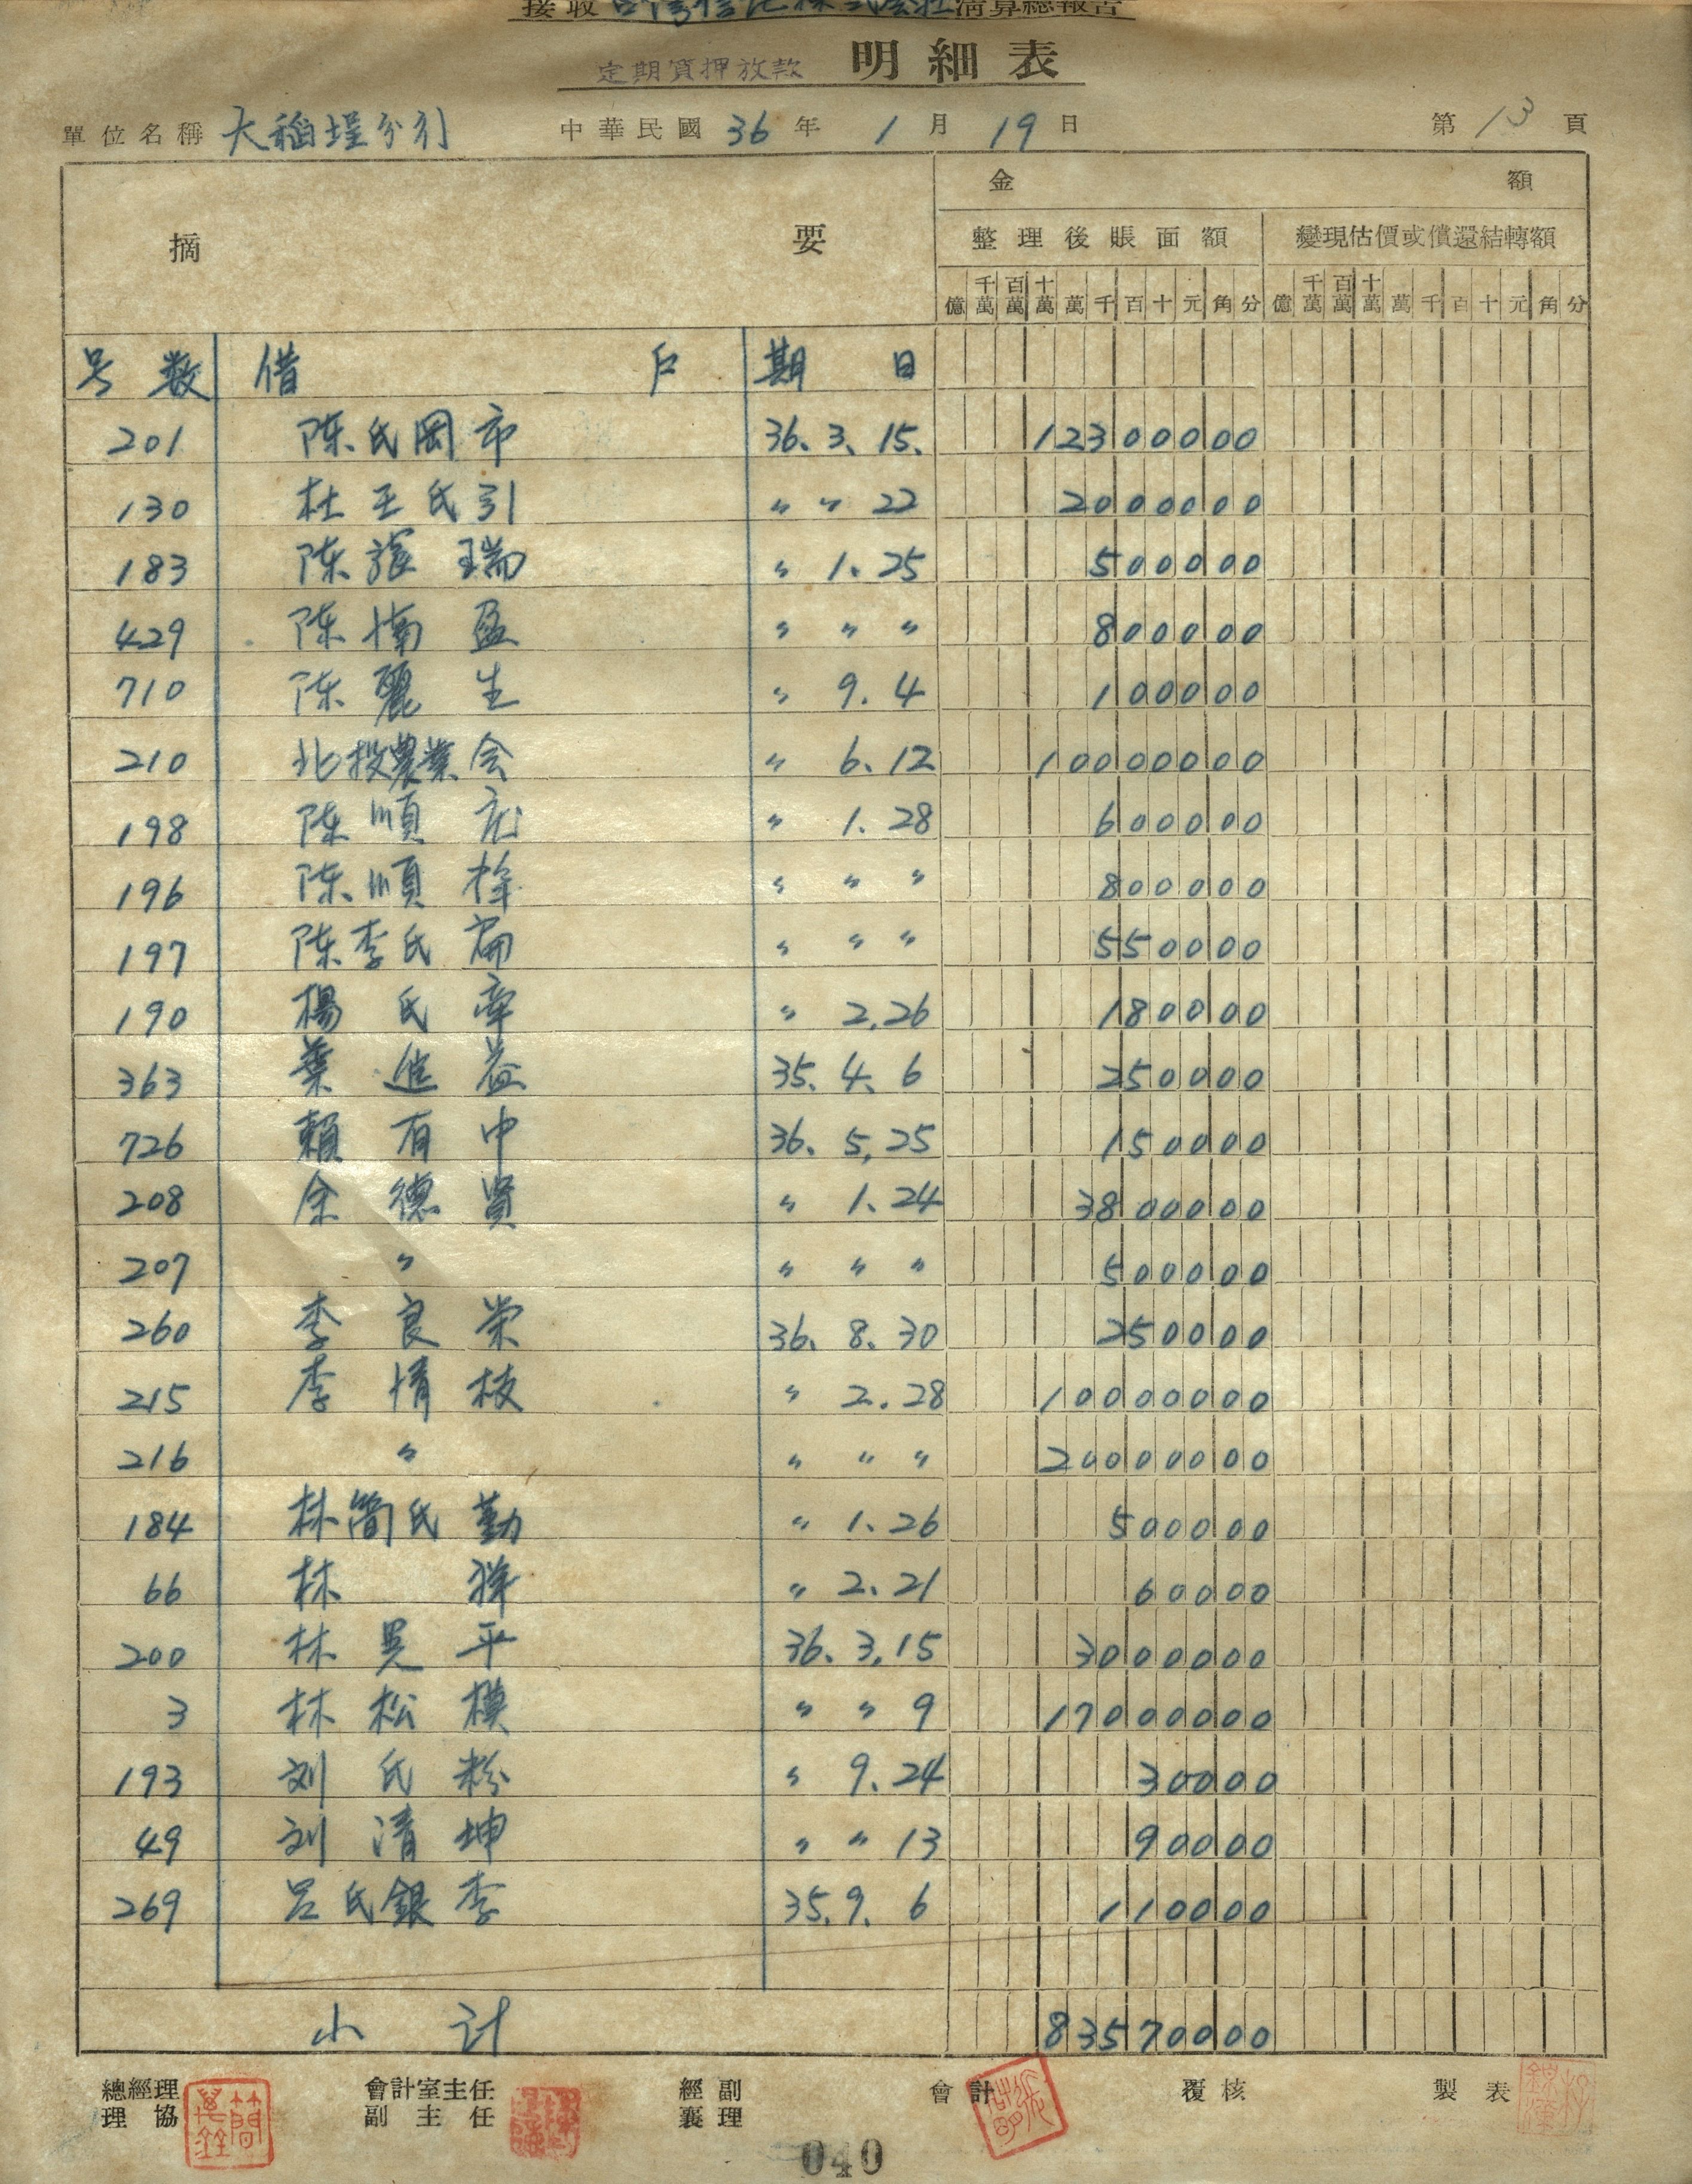 接收台湾信託株式会社清算總報告
定期質押放款 明細表
單位名稱 大稻埕分行 中華民國 36 年 1 月 19 日 第 13 頁
摘 要 金 額
整理後賬面額 變現估價或償還結轉額
億 千萬 百萬 十萬 萬 千 百 十 元 角 分 億 千萬 百萬 十萬 萬 千 百 十 元 角 分
号数 借 戶 期 日
201 陳氏岡市 36. 3. 15. 12300000
130 杜王氏引 〃 〃 22 2000000
183 陳瑞 〃 1. 25 500000
429 陳盈 〃 〃 〃 800000
710 陳麗生 〃 9. 4 100000
210 北投農業会 〃 6. 12 10000000
198 陳順 〃 1. 28 600000
196 陳順 〃 〃 〃 800000
197 陳李氏 〃 〃 〃 550000
190 楊氏 〃 2. 26 180000
363 葉進益 35. 4. 6 250000
726 賴有中 36. 5. 25 150000
208 余德賢 〃 1. 24 3800000
207 〃 〃 〃 〃 500000
260 李良栄 36. 8. 30 250000
215 李情枝 〃 2. 28 10000000
216 〃 〃 〃 〃 20000000
184 林簡氏勤 〃 1. 26 500000
66 林 〃 2. 21 60000
200 林晃平 36. 3. 15 3000000
3 林松模 〃 〃 9 17000000
193 刘氏粉 〃 9. 24 30000
49 刘清坤 〃 〃 13 90000
269 呂氏銀李 35. 9. 6 110000
小計 83570000
總經理 會計室主任 經副 會計 覆核 製表
理協 副主任 襄理
040